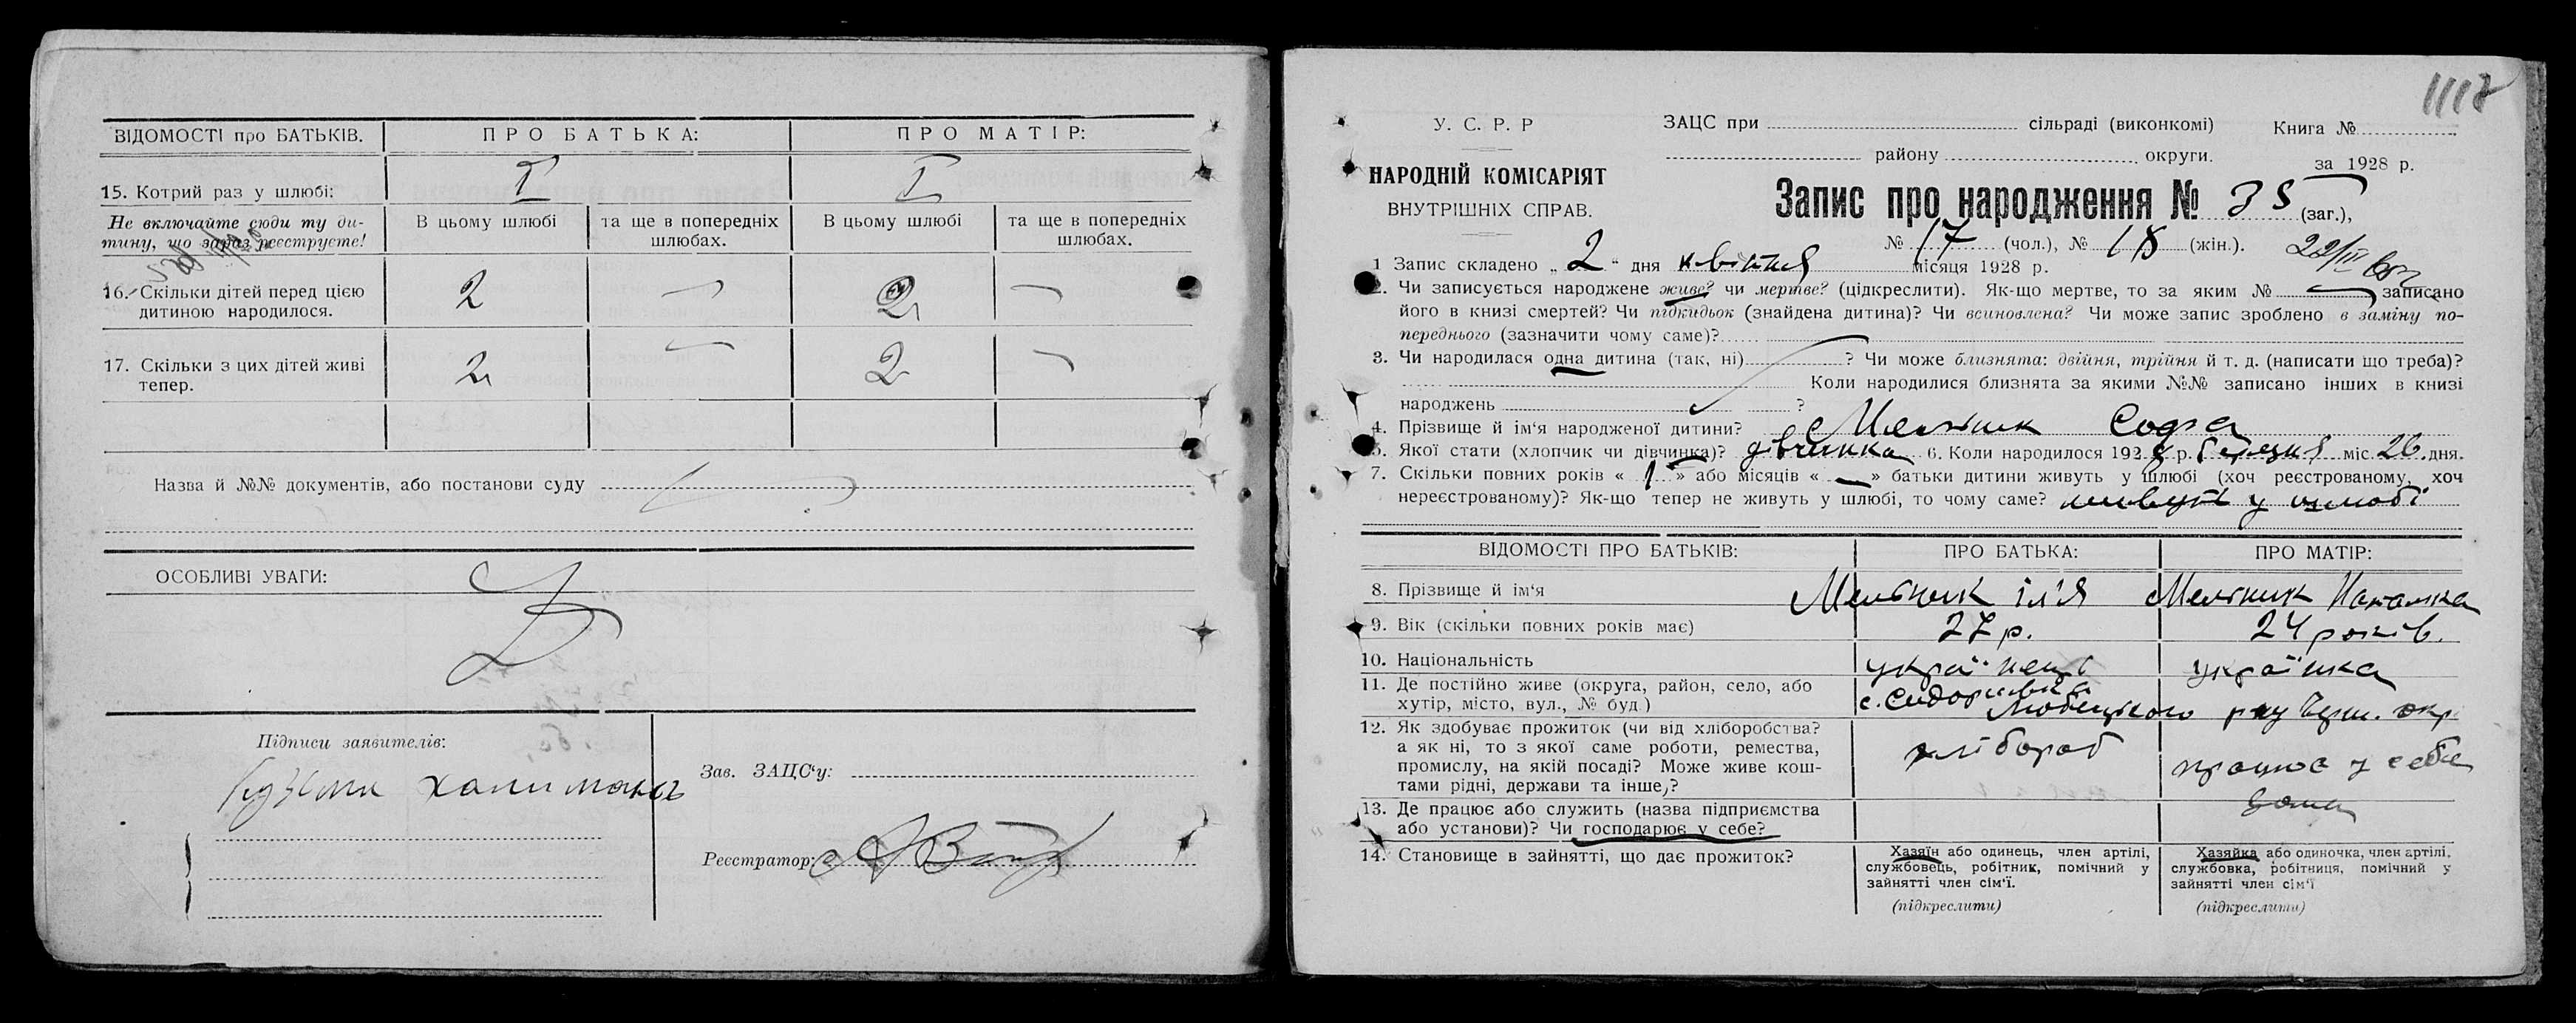 ВІДОМОСТІ про БАТЬКІВ. ПРО БАТЬКА: ПРО МАТІР:
15. Котрий раз у шлюбі: I I
Не включайте сюди ту ди- В цьому шлюбі та ще в попередніх В цьому шлюбі та ще в попередніх
тину, що зараз реєструєте! шлюбах. шлюбах.
16. Скільки дітей перед цією 2 — 2 —
дитиною народилося.
17. Скільки з цих дітей живі 2 — 2 —
тепер.
Назва й №№ документів, або постанови суду
ОСОБЛИВІ УВАГИ:
Підписи заявителів:
Зав. ЗАЦС'у:
Реєстратор:
1118
У. С. Р. Р ЗАЦС при сільраді (виконкомі) Книга №
району округи. за 1928 р.
НАРОДНІЙ КОМІСАРІЯТ
ВНУТРІШНІХ СПРАВ.
Запис про народження № 35 (заг.),
№ 17 (чол.), № 18 (жін.).
1 Запис складено „ 2 " дня квітня місяця 1928 р.
2. Чи записується народжене живе? чи мертве? (цідкреслити). Як-що мертве, то за яким № записано
його в книзі смертей? Чи підкидьок (знайдена дитина)? Чи всиновлена? Чи може запис зроблено в заміну по-
переднього (зазначити чому саме)?
3. Чи народилася одна дитина (так, ні) ? Чи може близнята: двійня, трійня й т. д. (написати що треба)?
Коли народилися близнята за якими №№ записано інших в книзі
народжень ?
4. Прізвище й ім'я народженої дитини? Мельник Софа
5. Якої стати (хлопчик чи дівчинка)? дівчинка 6. Коли народилося 1928 р. березня міс. 26 дня.
7. Скільки повних років « 1 » або місяців « — » батьки дитини живуть у шлюбі (хоч реєстрованому, хоч
нереєстрованому)? Як-що тепер не живуть у шлюбі, то чому саме? живуть у шлюбі
ВІДОМОСТІ ПРО БАТЬКІВ: ПРО БАТЬКА: ПРО МАТІР:
8. Прізвище й ім'я Мельник Ілія Мельник Наталка
9. Вік (скільки повних років має) 27 р. 24 років.
10. Національність українец українка
11. Де постійно живе (округа, район, село, або
хутір, місто, вул., № буд) с. Любецького р-ну Черн. окр.
12. Як здобуває прожиток (чи від хліборобства?
а як ні, то з якої саме роботи, ремества, хлібороб
промислу, на якій посаді? Може живе кош- працює у себе
тами рідні, держави та інше,?
дома
13. Де працює або служить (назва підприємства
або установи)? Чи господарює у себе?
14. Становище в зайнятті, що дає прожиток? Хазяїн або одинець, член артілі, Хазяйка або одиночка, член артілі,
службовець, робітник, помічний у службовка, робітниця, помічний у
зайнятті член сім'ї. зайнятті член сім'ї
(підкреслити) (підкреслити)